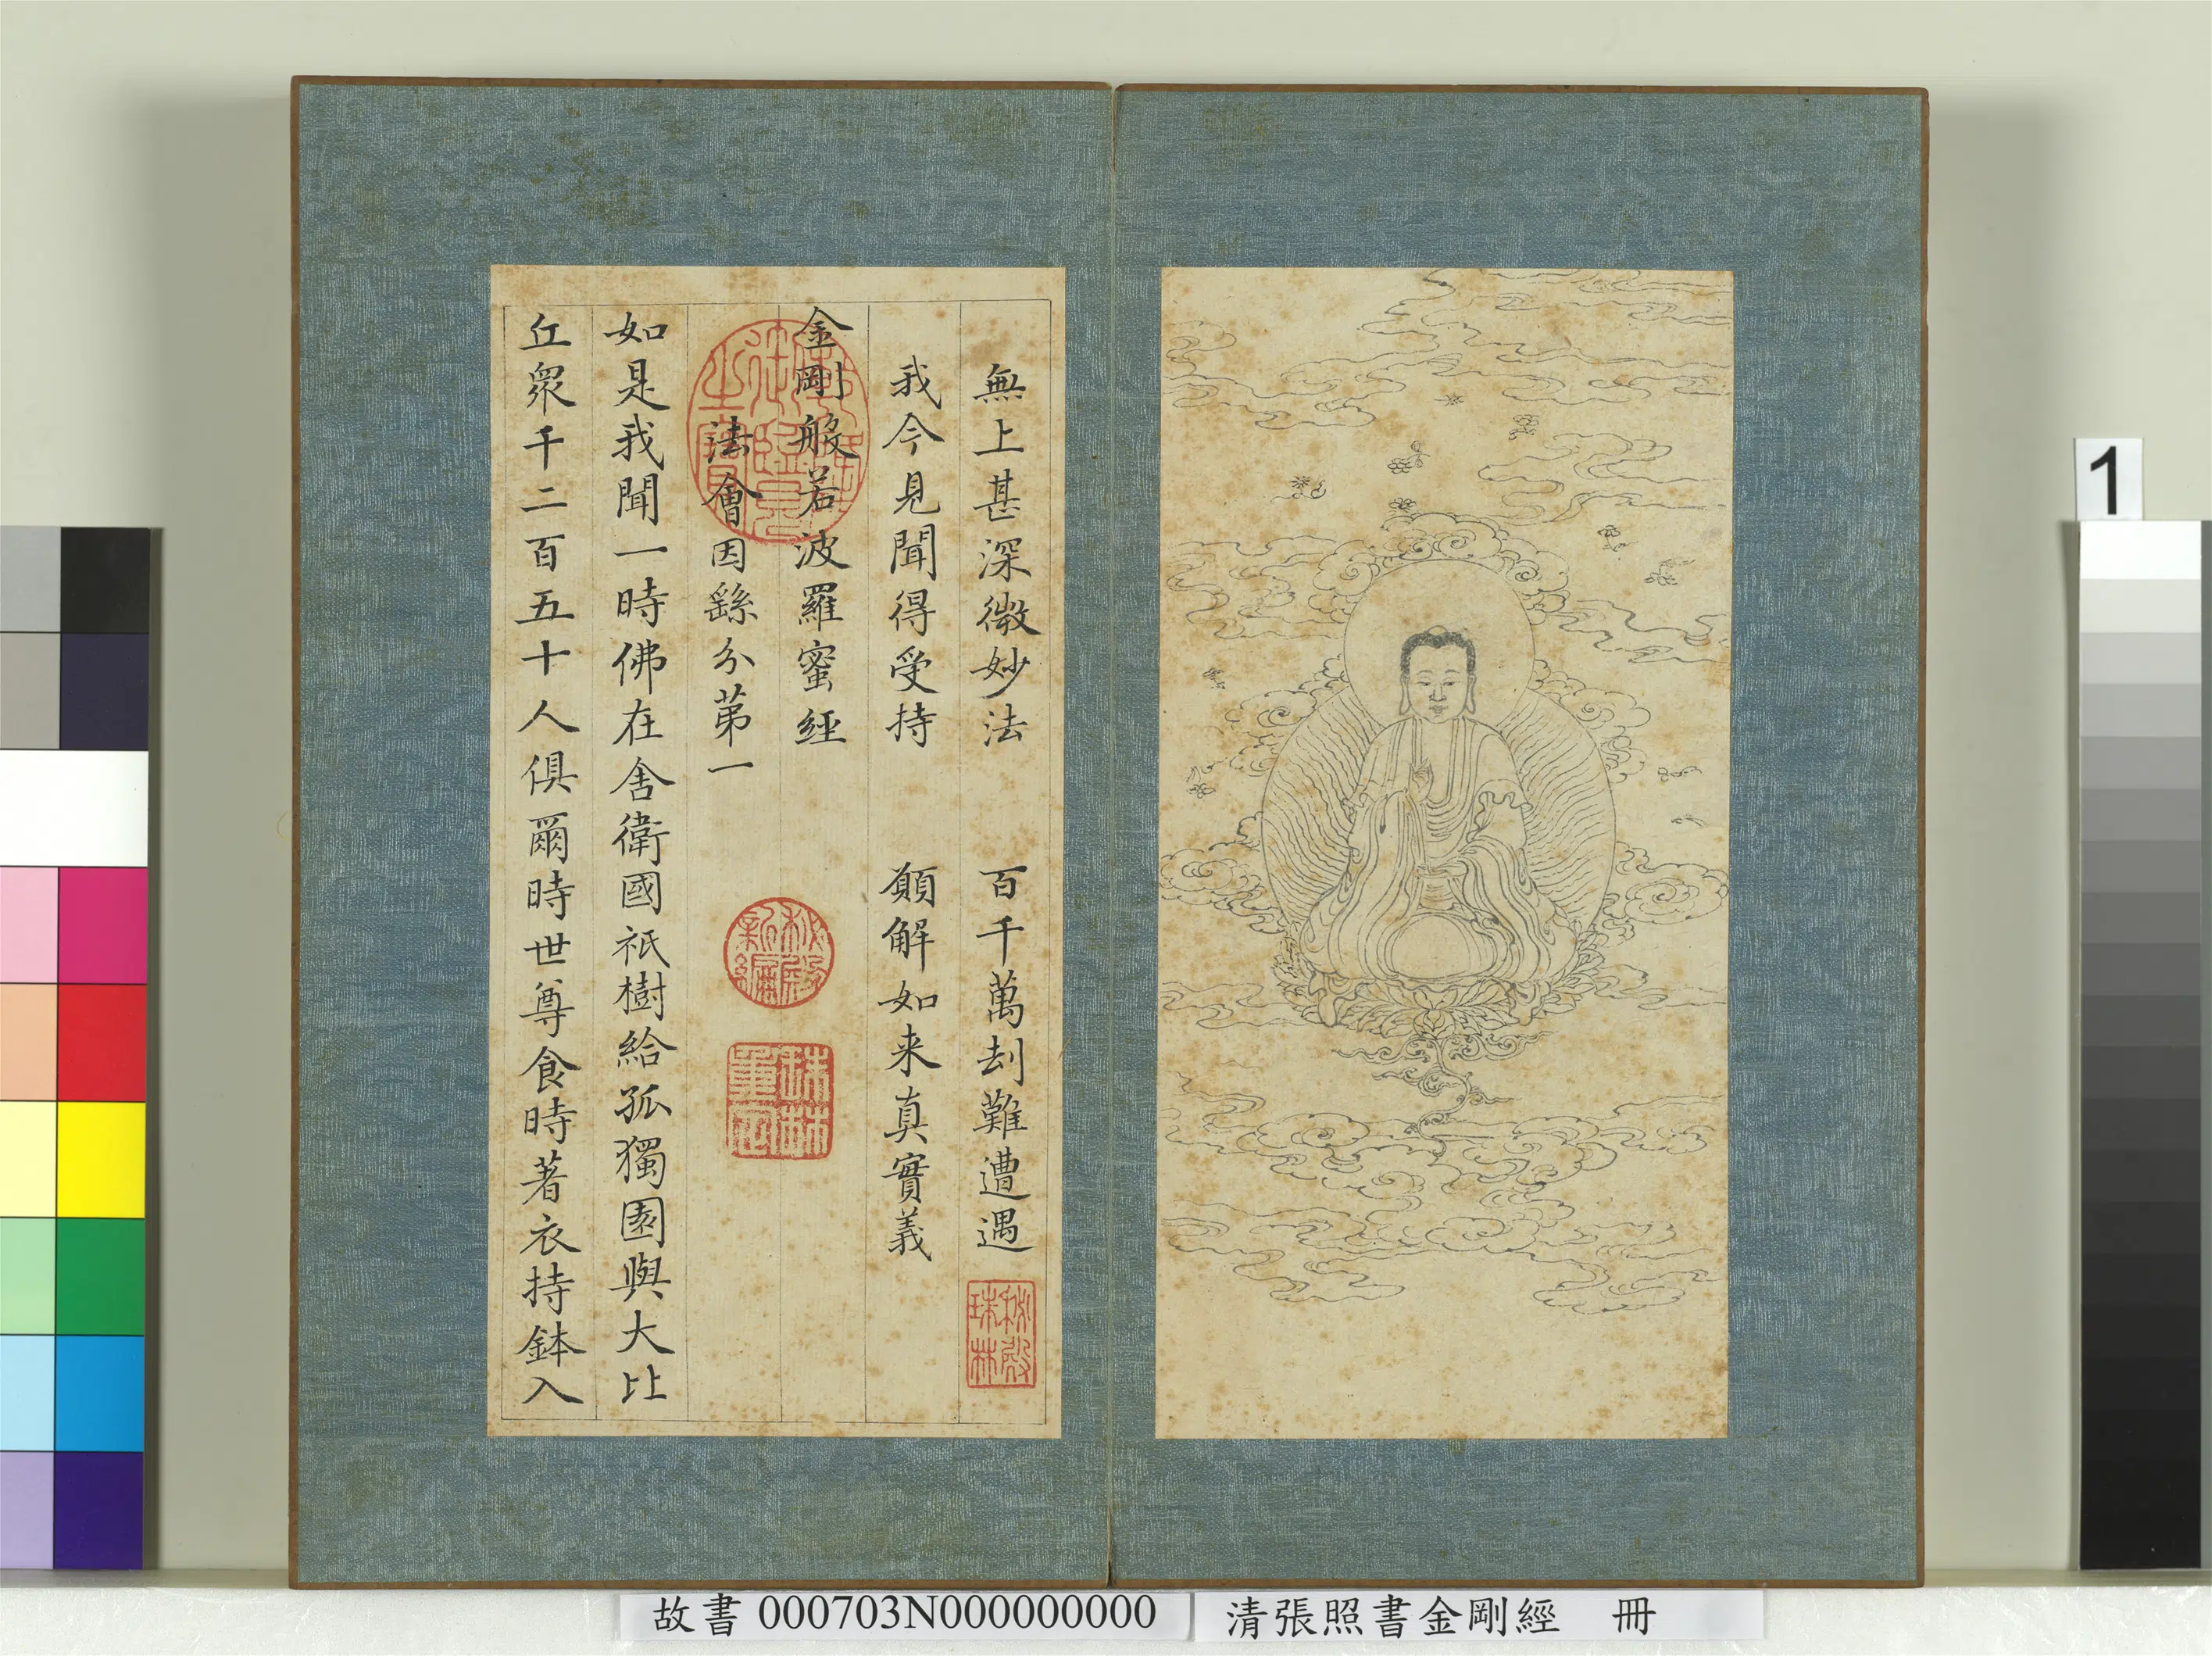 無上甚深微妙法　百千萬刦難遭遇
我今見聞得受持　願解如来真實義
金剛般若波羅蜜經
法會因繇分苐一
如是我聞一時佛在舍衛國祇樹給孤獨園與大比
丘衆千二百五十人俱爾時世尊食時著衣持鉢入
秘殿珠林
乾隆御覽之寶
秘殿新編
珠林重定
1
故書 000703N000000000
清張照書金剛經　冊